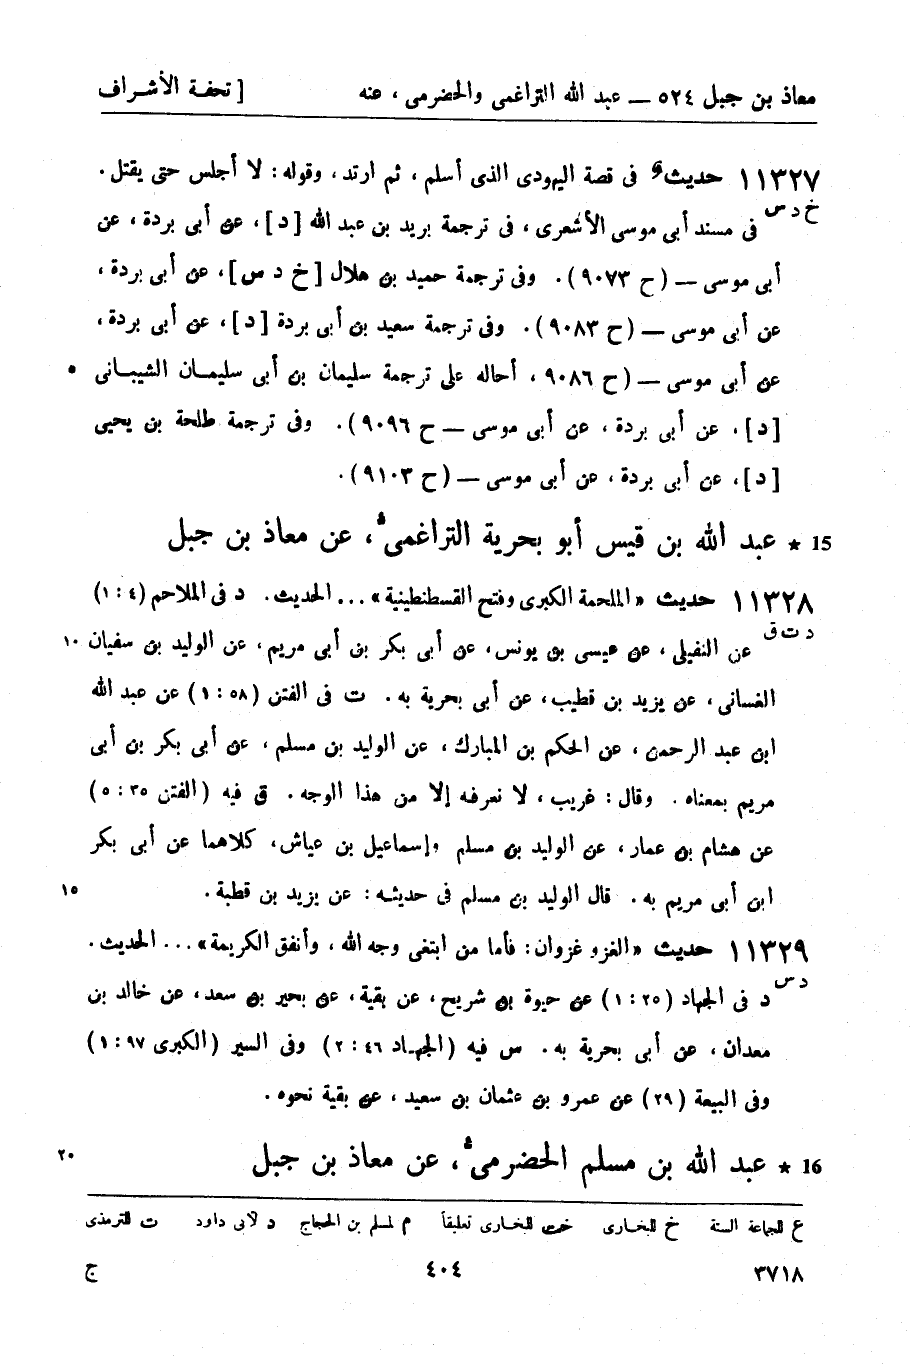 معاذ بن جبل ٥٢٤ — عبد الله التراغمى والحضرمى ، عنه [ تحفة الأشراف
١١٣٢٧ حديث في قصة اليهودى الذى أسلم ، ثم ارتد ، وقوله : لا أجلس حتى يقتل .
خ د س فى مسند أبى موسى الأشعرى ، فى ترجمة بريد بن عبد الله [ د ] ، عن أبى بردة ، عن
أبى موسى — ( ح ٩٠٧٣ ) . وفى ترجمة حميد بن هلال [ خ د س ] ، عن أبى بردة ،
عن أبى موسى — ( ح ٩٠٨٣ ) . وفى ترجمة سعيد بن أبى بردة [ د ] ، عن أبى بردة ،
عن أبى موسى — ( ح ٩٠٨٦ ، أحاله على ترجمة سليمان بن أبى سليمان الشيبانى ٥
[ د ] ، عن أبى بردة ، عن أبى موسى — ح ٩٠٩٦ ) . وفى ترجمة طلحة بن يحيى
[ د ] ، عن أبى بردة ، عن أبى موسى — ( ح ٩١٠٣ ) .
15 ★ عبد الله بن قيس أبو بحرية التراغمى ، عن معاذ بن جبل
١١٣٢٨ حديث « الملحمة الكبرى وفتح القسطنطينية » ... الحديث . د فى الملاحم ( ٤ : ١ )
د ت ق عن النفيلى ، عن عيسى بن يونس ، عن أبى بكر بن أبى مريم ، عن الوليد بن سفيان ١٠
الغسانى ، عن يزيد بن قطيب ، عن أبى بحرية به . ت فى الفتن ( ٥٨ : ١ ) عن عبد الله
ابن عبد الرحمن ، عن الحكم بن المبارك ، عن الوليد بن مسلم ، عن أبى بكر بن أبى
مريم بمعناه . وقال : غريب ، لا نعرفه إلا من هذا الوجه . ق فيه ( الفتن ٣٥ : ٥ )
عن هشام بن عمار ، عن الوليد بن مسلم وإسماعيل بن عياش ، كلاهما عن أبى بكر
ابن أبى مريم به . قال الوليد بن مسلم فى حديثه : عن يزيد بن قطبة . ١٥
١١٣٢٩ حديث « الغزو غزوان : فأما من ابتغى وجه الله ، وأنفق الكريمة » ... الحديث .
د س د فى الجهاد ( ٢٥ : ١ ) عن حيوة بن شريح ، عن بقية ، عن بحير بن سعد ، عن خالد بن
معدان ، عن أبى بحرية به . س فيه ( الجهاد ٤٦ : ٢ ) وفى السير ( الكبرى ٩٧ : ١ )
وفى البيعة ( ٢٩ ) عن عمرو بن عثمان بن سعيد ، عن بقية نحوه .
16 ★ عبد الله بن مسلم الحضرمى ، عن معاذ بن جبل ٢٠
ع للجماعة الستة خ للبخارى خت للبخارى تعليقاً م لمسلم بن الحجاج د لأبى داود ت للترمذى
٣٧١٨ ٤٠٤ ج